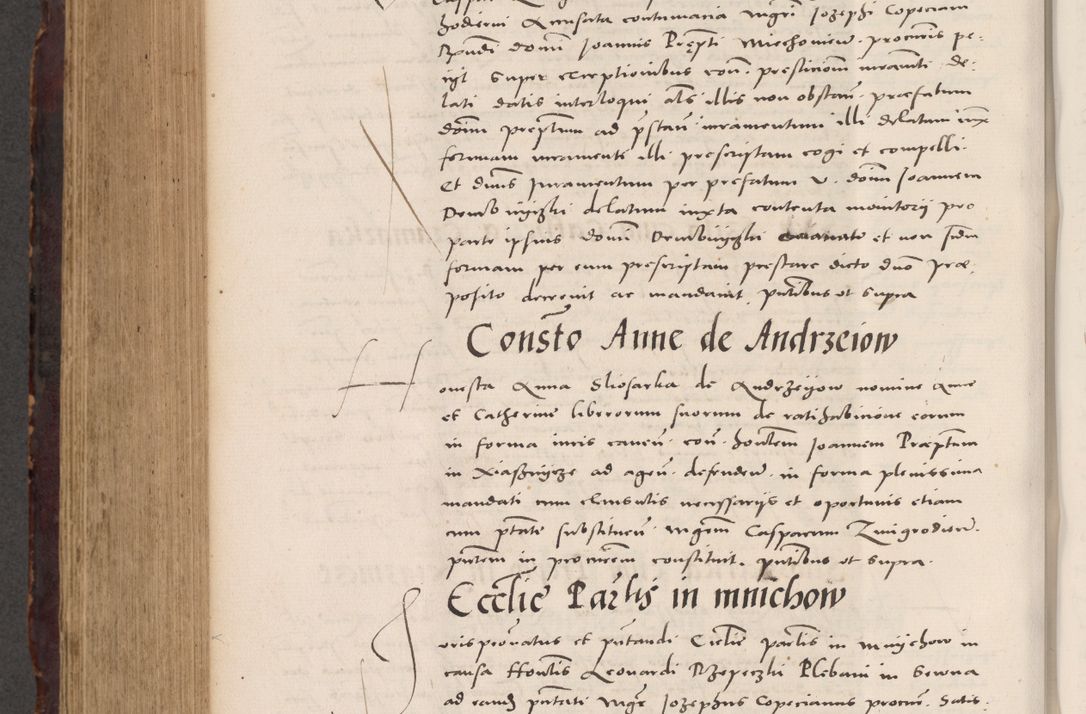 hodierni Accusata contumacia Mgri Jozephi Copeciani
domi Joannis Prepti Miechovien. procuris pe.
igt super exceptionibus con. presticiom iuramti de.
lati datis interloqui als illis non obstan. præfatum
dom preptum ad pstan iuramentum illi delatum iux
formam iuramenti illi prescriptam cogi et compelli.
Et duns Juramentum per prefatum V. dom Joannem
delatum iuxta contenta monitorij pro
parte ipsius domi et non sedm
formam per eum prescriptam prestare dicto duo Præ.
posito decrevit ac mandavit, putibus ut supra
Consto Anne de Andrzeiow
Honesta Anna Sliosarka de Andrzeyow nomine Anne
et Catherine liberorum suorum de ratihabinione eorum
in forma iuris caven. con. hontem Joannem Præptum
in Xiasznycze ad agen. defenden. in forma plenissima
mandati cum clausulis necessarijs et oportunis etiam
cum ptate substituen. Mgrm Casparum Zmigrodien.
putem in procurem constituit. putibus ut supra.
Ecclie Parlis in mnichow
Joris pronatus et putandi Ecclie parlis in Mnychow in
causa Hontis Leonardi Rzepeczki Plebani in Sewna
ad eand putati Mgr Jozephus Copecianus procur. Satis.